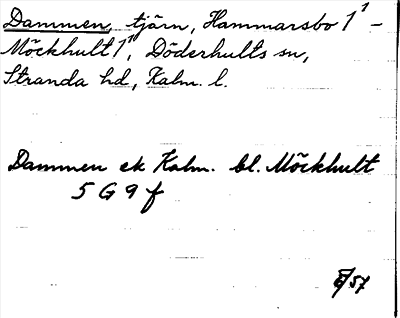 Dammen, tjärn, Hammarsbo 1¹ –
Möckhult 1¹, Döderhults sn,
Stranda hd, Kalm. l.
Dammen ek Kalm. bl. Möckhult
5 G 9 f
/57